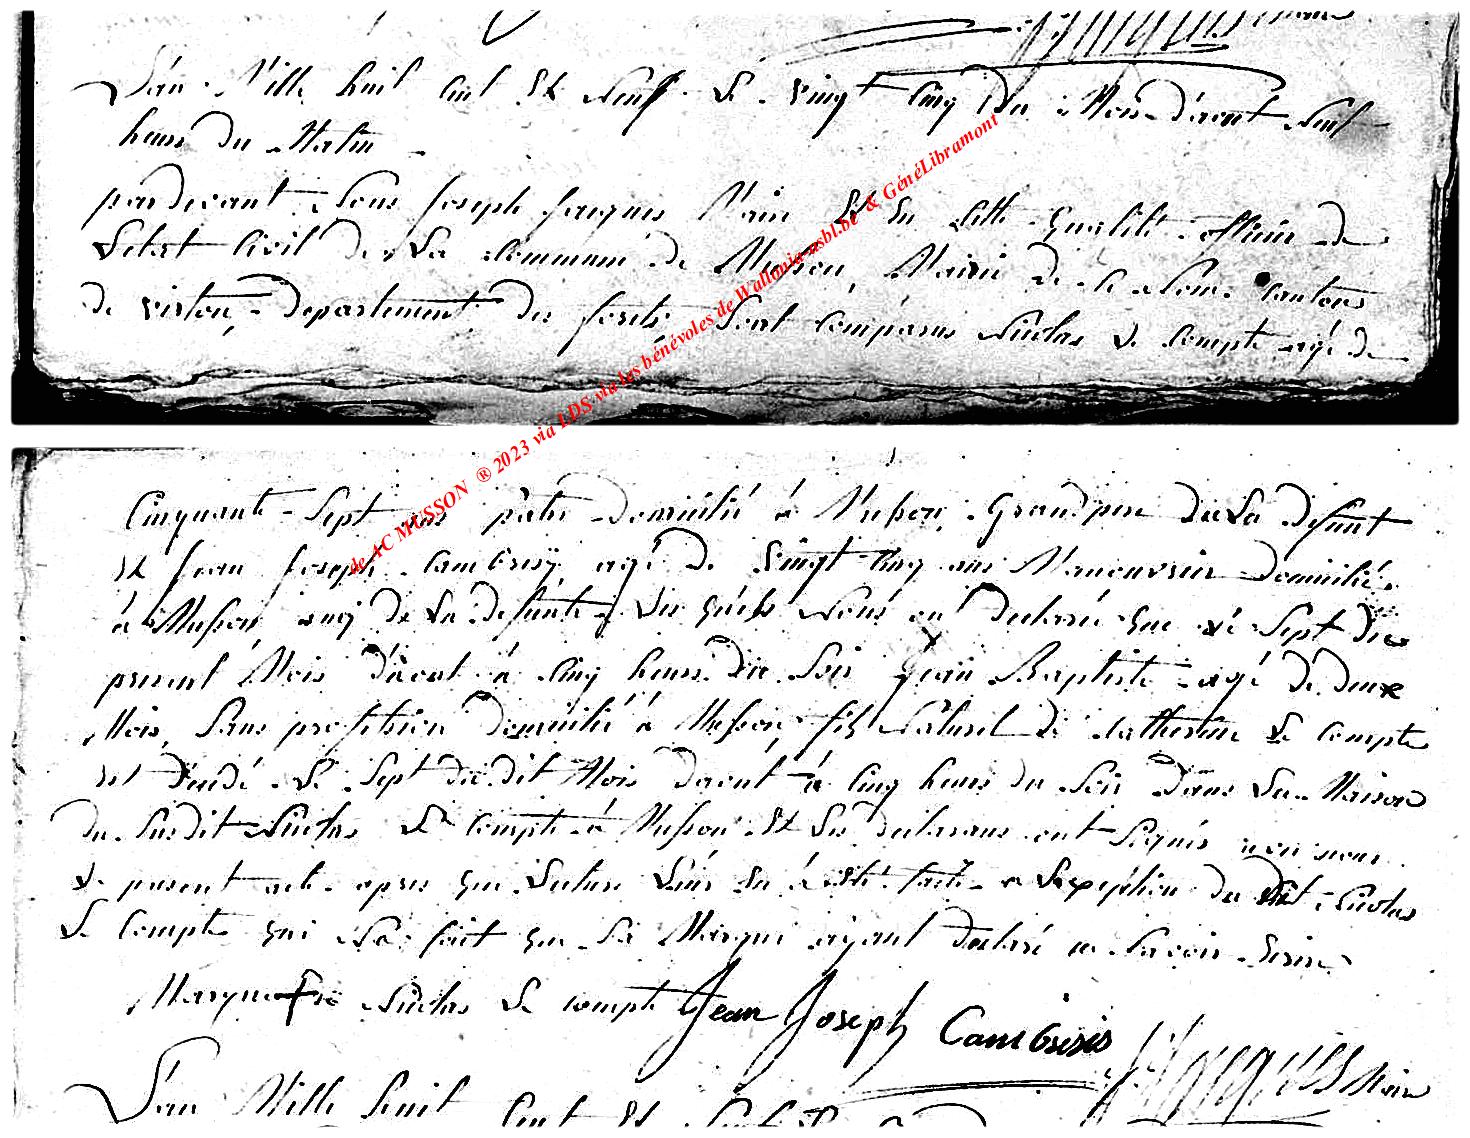 L'an Mille huit Cent Et Neuf Le vingt Cinq Du Mois d'aout Neuf
heures du Matin
pardevant Nous Joseph Jacques Maire Et En Cette qualité officier de
L'etat Civil De La Commune de Musson, Mairie De Ce Nom Canton
de virton, Departement des forets Sont Comparus Nicolas Le Compte agé de
Cinquante Sept ans patre Domicilié à Musson, Grand pere De La defunt
Et Jean Joseph Cambresÿ agé De vingt Cinq ans Manouvrier Domicilié
à Musson amj De La defunte Les quels Nous on Declaré que Le Sept Du
present Mois d'aout à Cinq heures du Soir Jean Baptiste agé De deux
Mois, Sans profession Domicilié à Musson, fils Naturel De Catherine Le Compte
est Décedé Le Sept du dit Mois Daout à Cinq heures du Soir Dans La Maison
du Susdit Nicolas Le Compte à Musson Et Les Declarans ont Signés avec nous
Le present acte apres que Lecture Leur En á Eté faite a L'exception du dit Nicolas
Le Compte qui Na fait que Sa Marque ayant Declaré ne Savoir Ecrire
Marque de Nicolas Le Compte Jean Joseph Cambrisis
J Jacques Maire
L'an Mille huit Cent Et
de AC MUSSON ® 2023 via LDS via les bénévoles de Wallonia-asbl.be & GénéLibramont